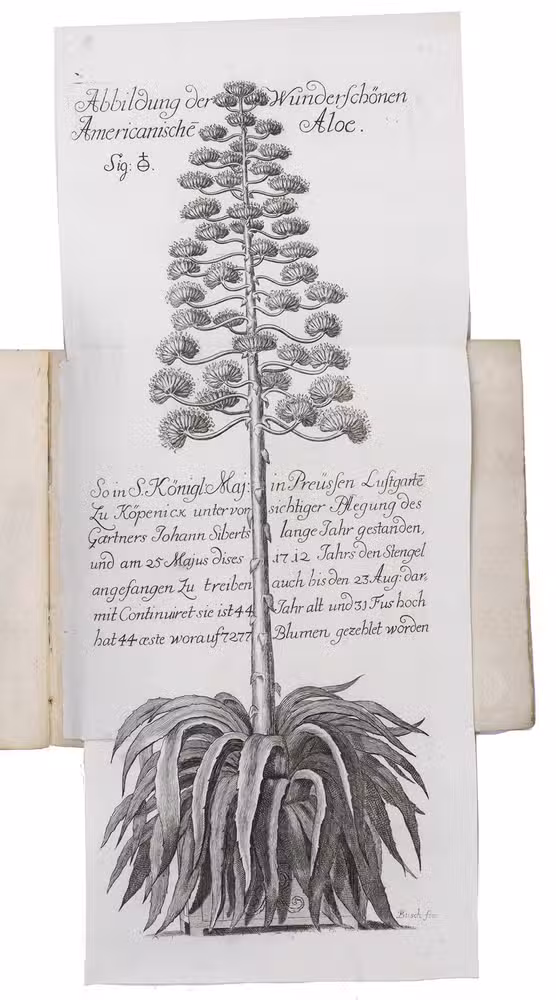 Abbildung der Wunderſchönen
Americanischē Aloe.
Sig: ♁.
So in S. Königl: Maj: in Preüſſen Luſtgartē
Zu Köpenick unter vorsichtiger Pflegung des
Gärtners Johann Siberts lange Jahr geſtanden,
und am 25 Majus dises 1712 Jahrs den Stengel
angefangen Zu treiben auch bis den 23 Aug: dar,
mit Continuiret sie ist 44 Jahr alt und 31 Fus hoch
hat 44 æste worauf 7277 Blumen gezehlet worden
Busch fec: